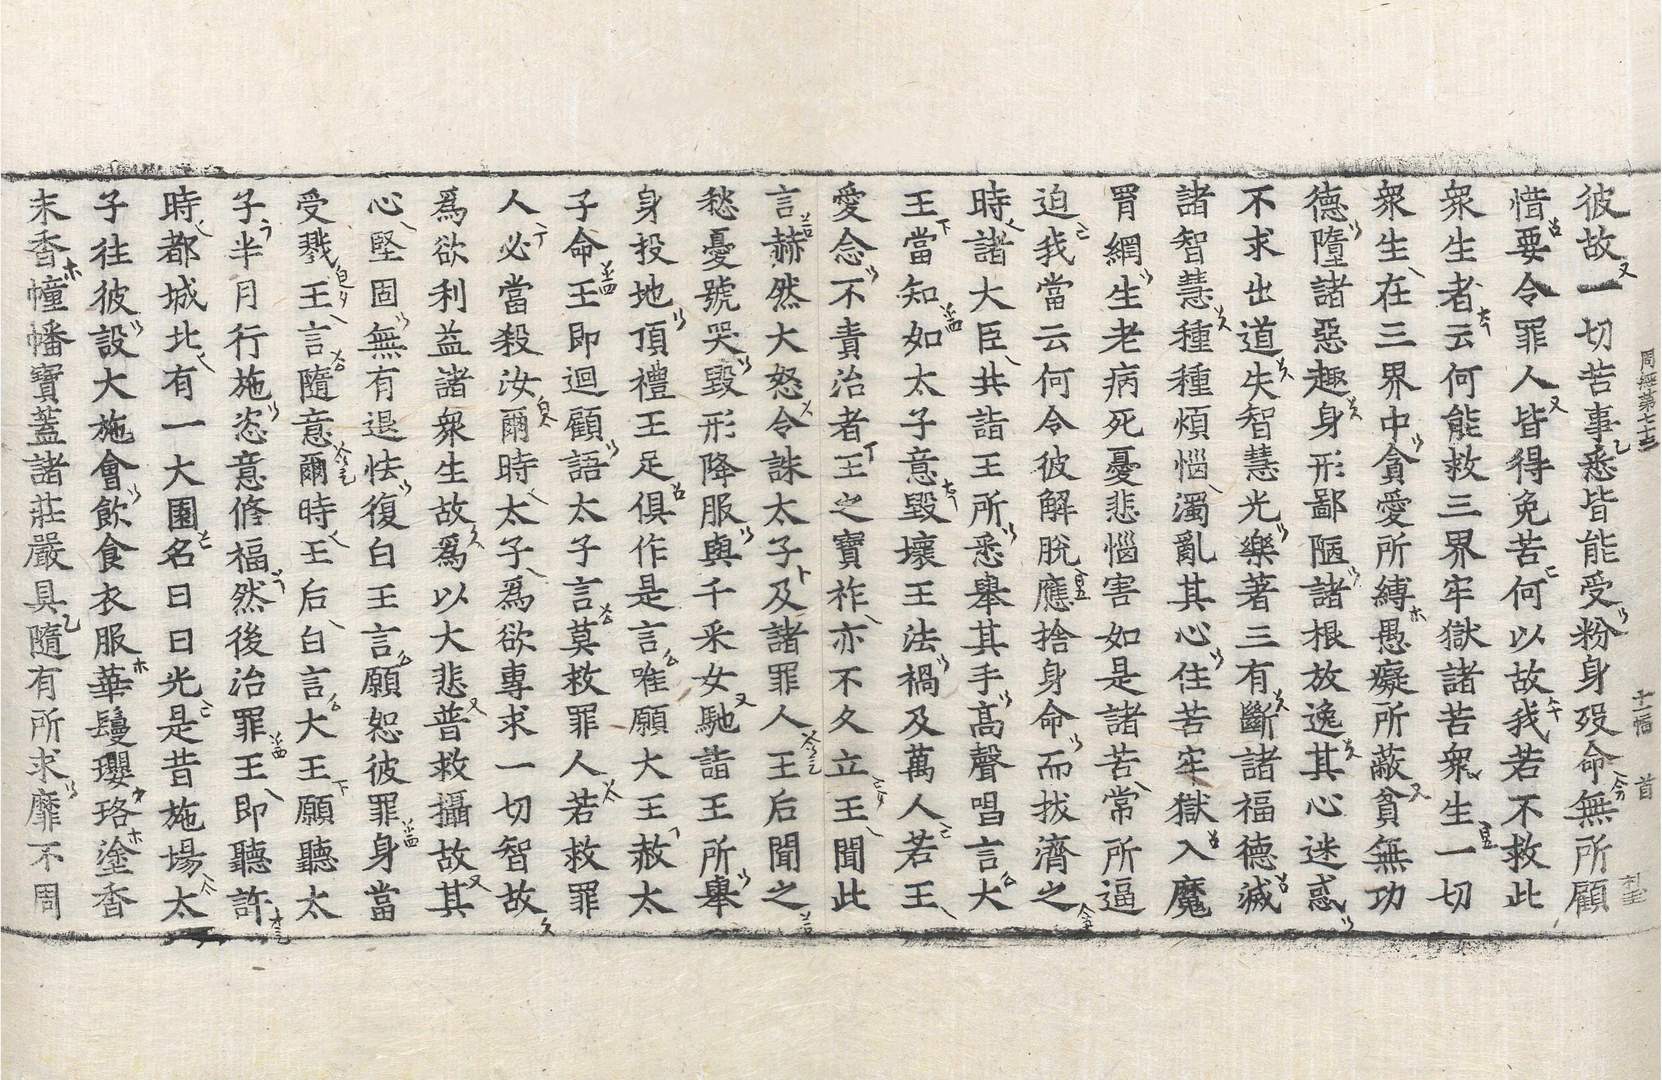 周經第七十三 十一幅 首
彼故一切苦事悉皆能受粉身歿命無所顧
惜要令罪人皆得免苦何以故我若不救此
衆生者云何能救三界牢獄諸苦衆生一切
衆生在三界中貪愛所縛愚癡所蔽貧無功
德墮諸惡趣身形鄙陋諸根放逸其心迷惑
不求出道失智慧光樂著三有斷諸福德滅
諸智慧種種煩惱濁亂其心住苦牢獄入魔
罥網生老病死憂悲惱害如是諸苦常所逼
迫我當云何令彼解脫應捨身命而拔濟之
時諸大臣共詣王所悉舉其手高聲唱言大
王當知如太子意毀壞王法禍及萬人若王
愛念不責治者王之寶祚亦不久立王聞此
言赫然大怒令誅太子及諸罪人王后聞之
愁憂號哭毀形降服與千采女馳詣王所舉
身投地頂禮王足俱作是言唯願大王赦太
子命王即迴顧語太子言莫救罪人若救罪
人必當殺汝爾時太子爲欲專求一切智故
爲欲利益諸衆生故爲以大悲普救攝故其
心堅固無有退怯復白王言願恕彼罪身當
受戮王言隨意爾時王后白言大王願聽太
子半月行施恣意修福然後治罪王即聽許
時都城北有一大園名曰日光是昔施場太
子往彼設大施會飲食衣服華鬘瓔珞塗香
末香幢幡寶蓋諸莊嚴具隨有所求靡不周